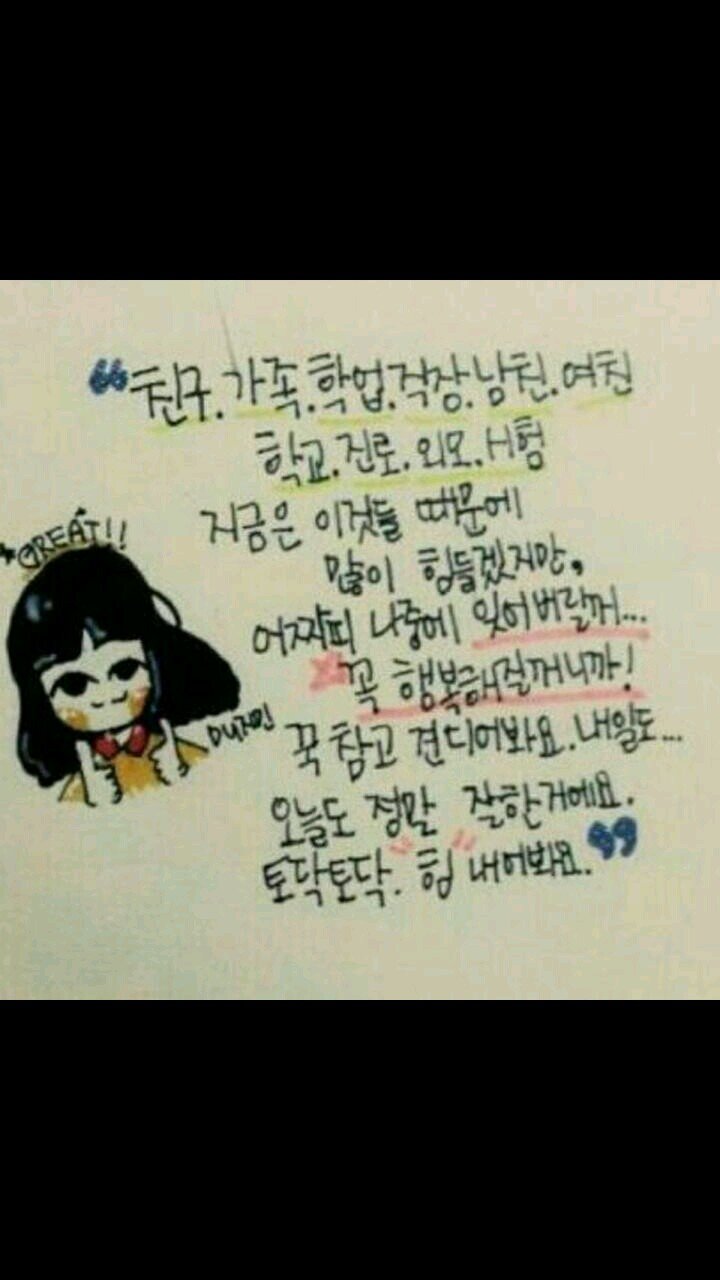 "친구.가족.학업.직장.남친.여친
학교.진로.외모.시험
지금은 이것들 때문에
많이 힘들겠지만,
어짜피 나중에 잊어버릴꺼...
꼭 행복해질꺼니까!
꾹 참고 견디어봐요.내일도...
오늘도 정말 잘한거에요.
토닥토닥. 힘 내어봐요."
*GREAT!!